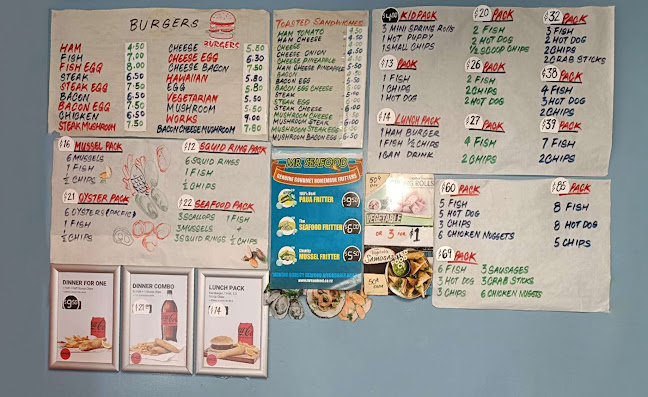 BURGERS
BURGERS
HAM 4.50
FISH 7.00
FISH EGG 8.00
STEAK 6.50
STEAK EGG 7.50
BACON 6.50
BACON EGG 7.50
CHICKEN 6.50
STEAK MUSHROOM 7.50
CHEESE 5.80
CHEESE EGG 6.30
CHEESE BACON 7.50
HAWAIIAN
EGG 5.80
VEGETARIAN 5.50
MUSHROOM 5.50
WORKS 9.00
BACON CHEESE MUSHROOM 7.80
TOASTED SANDWICHES
HAM TOMATO
HAM CHEESE
CHEESE
CHEESE ONION
CHEESE PINEAPPLE
HAM CHEESE PINEAPPLE
BACON
BACON EGG
BACON EGG CHEESE
STEAK
STEAK EGG
STEAK CHEESE
MUSHROOM STEAK
MUSHROOM STEAK EGG
MUSHROOM BACON EGG
KID PACK
3 MINI SPRING ROLLS
1 HOT PUPPY
1 SMALL CHIPS
$13 PACK
1 FISH
1 CHIPS
1 HOT DOG
$14 LUNCH PACK
1 HAM BURGER
1 FISH ½ CHIPS
1 CAN DRINK
$20 PACK
2 FISH
2 HOT DOG
½ SCOOP CHIPS
$26 PACK
2 FISH
2 HOT DOG
$27 PACK
4 FISH
2 CHIPS
$32 PACK
3 FISH
2 HOT DOG
2 CHIPS
2 CRAB STICKS
$38 PACK
4 FISH
3 HOT DOG
2 CHIPS
$39 PACK
7 FISH
2 CHIPS
$16 MUSSEL PACK
6 MUSSELS
1 FISH
½ CHIPS
$12 SQUID RING PACK
6 SQUID RINGS
1 FISH
½ CHIPS
$21 OYSTER PACK
6 OYSTERS (PACIFIC)
1 FISH
½ CHIPS
$22 SEAFOOD PACK
3 SCALLOPS 1 FISH
3 MUSSELS
3 SQUID RINGS ½ CHIPS
MR SEAFOOD
GENUINE GOURMET HOMEMADE FRITTERS
PAUA FRITTER $9.50
The
SEAFOOD FRITTER $6.00
MUSSEL FRITTER $5.50
www.mrseafood.co.nz
50¢
SPRING ROLLS
VEGETABLE
OR 3 FOR $1
SAMOSAS
50¢
$60 PACK
5 FISH
5 HOT DOG
3 CHIPS
6 CHICKEN NUGGETS
$85 PACK
8 FISH
8 HOT DOG
5 CHIPS
$69 PACK
6 FISH 3 SAUSAGES
3 HOT DOG 3 CRAB STICKS
3 CHIPS 6 CHICKEN NUGGETS
DINNER FOR ONE
$9.50
DINNER COMBO
LUNCH PACK
$14